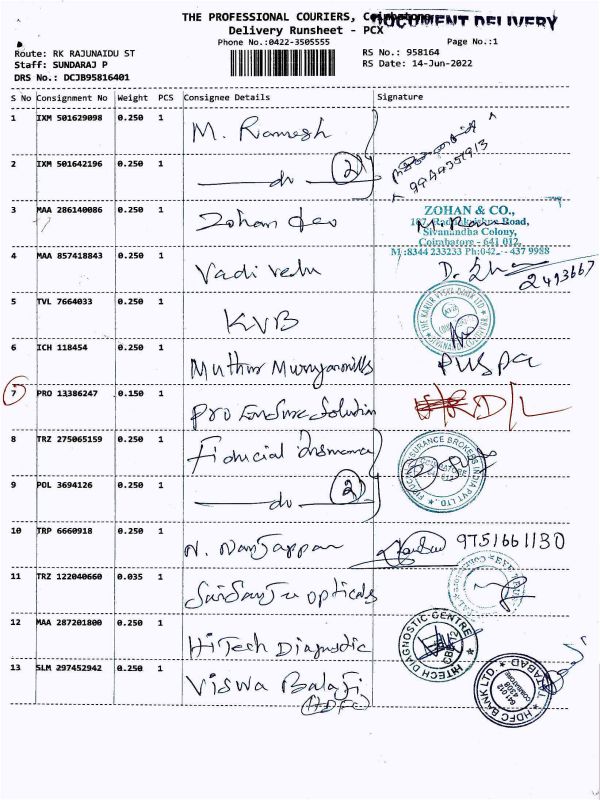 THE PROFESSIONAL COURIERS, Coimbatore
DOCUMENT DELIVERY
Delivery Runsheet - PCX
Phone No.:0422-3505555
Page No.:1
Route: RK RAJUNAIDU ST
RS No.: 958164
Staff: SUNDARAJ P
RS Date: 14-Jun-2022
DRS No.: DCJB95816401
S No Consignment No Weight PCS Consignee Details Signature
1 IXM 501629098 0.250 1 M. Ramesh
9944357913
2 IXM 501642196 0.250 1 do 2
3 MAA 286140086 0.250 1 Zohan &co
ZOHAN & CO.,
Road,
Sivanandha Colony,
Coimbatore - 641 012.
M:8344 233233 Ph:042 - 437 9988
4 MAA 857418843 0.250 1 Vadivelu
2493667
5 TVL 7664033 0.250 1 KVB
THE KARUR VYSYA BANK LTD
6 ICH 118454 0.250 1 Muthur Murugan mills PUSPA
7 PRO 13386247 0.150 1 Pro Endure Solution D/L
8 TRZ 275065159 0.250 1 Fiducial Insurance
INSURANCE BROKERS INDIA PVT LTD.
9 POL 3694126 0.250 1 do 2
10 TRP 6660918 0.250 1 N. Nanjappan 9751661130
11 TRZ 122040660 0.035 1 Opticals
12 MAA 287201800 0.250 1 HiTech Diagnostic
HITECH DIAGNOSTIC CENTRE
13 SLM 297452942 0.250 1 Viswa Balaji
(HDFC)
HDFC BANK LTD.
COIMBATORE
641 012